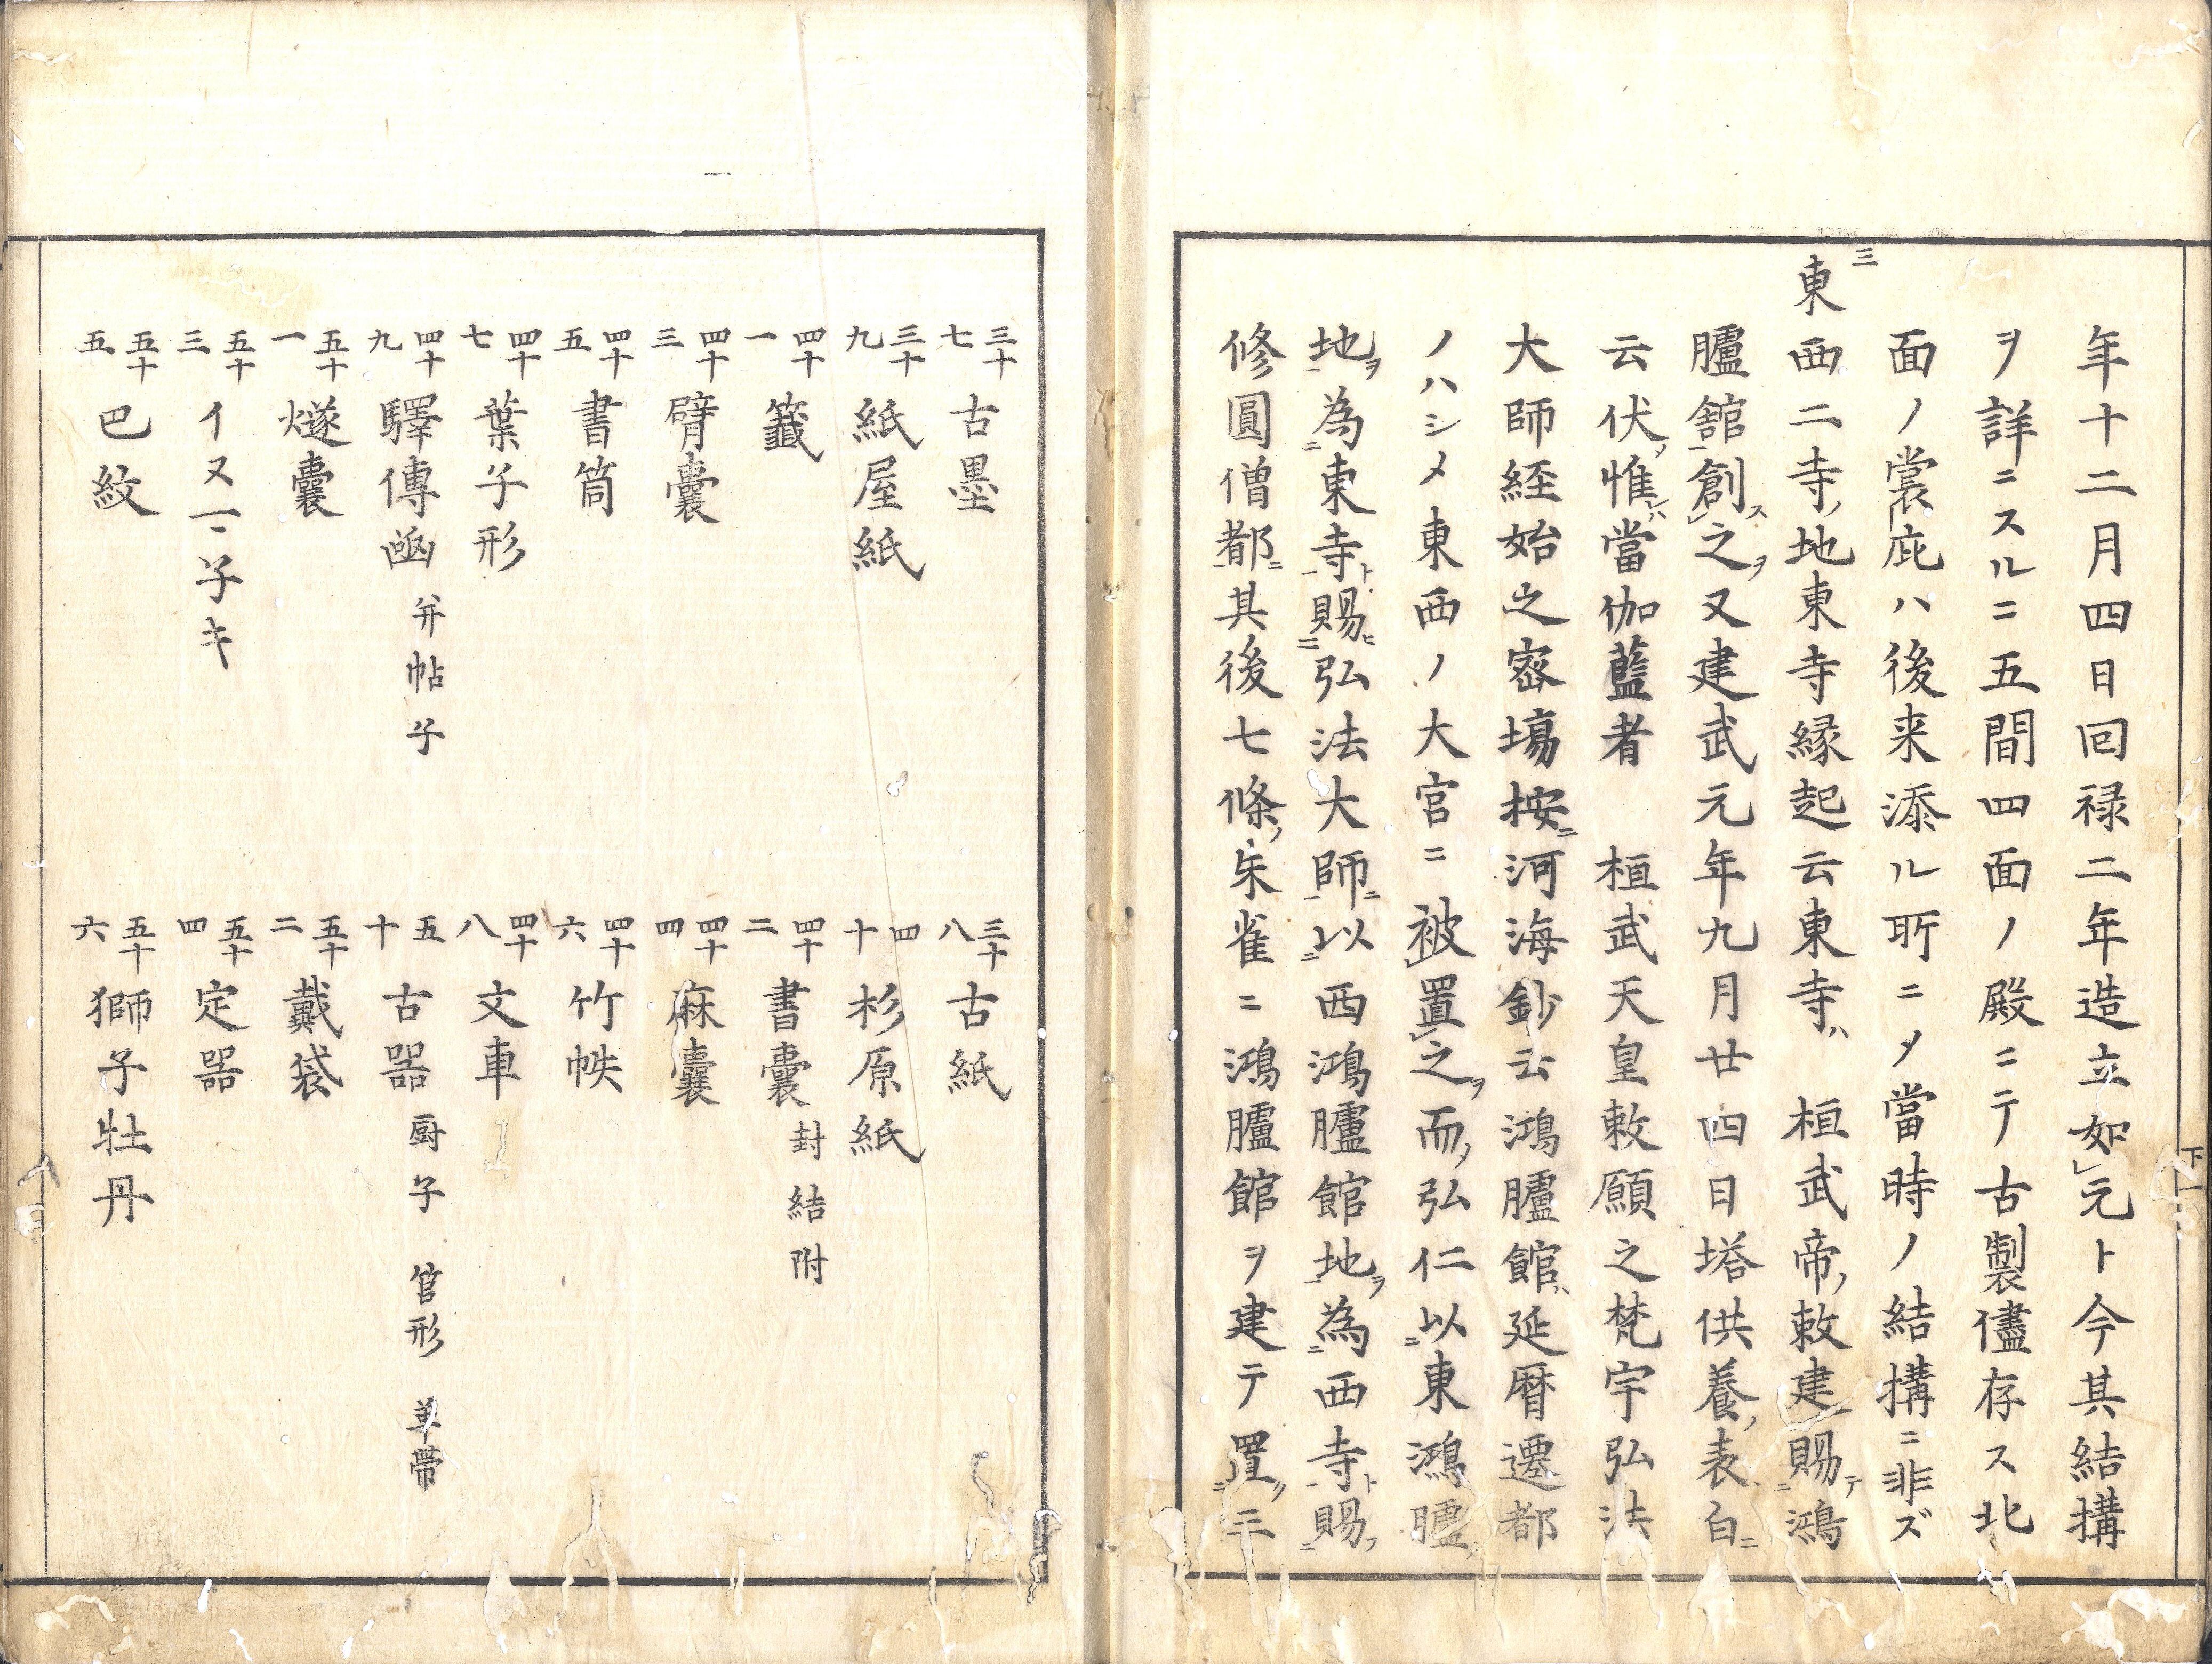 年十二月四日回禄二年造立如元ト今其結搆
ヲ詳ニスルニ五間四面ノ殿ニテ古製儘存ス北
面ノ裳庇ハ後来添ル所ニメ當時ノ結搆ニ非ズ
三
東西二寺ノ地東寺縁起云東寺ハ 桓武帝ノ敕建賜テ鴻
臚館創ス之ヲ又建武元年九月廿四日塔供養ノ表白ニ
云伏ノ惟ハ當伽藍者 桓武天皇敕願之梵宇弘法
大師経始之密場按ニ河海鈔云鴻臚館ハ延暦遷都
ノハシメ東西ノ大宮ニ被置之ヲ而ノ弘仁以東鴻臚ノ
地ヲ為東寺ト賜ヒ弘法大師ニ以西鴻臚館地ヲ為西寺ト賜フ
修圓僧都ニ其後七條ノ朱雀ニ鴻臚館ヲ建テ置リ三
下一
三十七 古墨
三十八 古紙
三十九 紙屋紙
四十 杉原紙
四十一 籤
四十二 書囊 封結附
四十三 臂囊
四十四 麻囊
四十五 書筒
四十六 竹帙
四十七 葉子形
四十八 文車
四十九 驛傳凾 弁帖子
五十 古器 厨子 官形 革帶
五十一 燧囊
五十二 戴袋
五十三 イヌ子キ
五十四 定器
五十五 巴紋
五十六 獅子牡丹